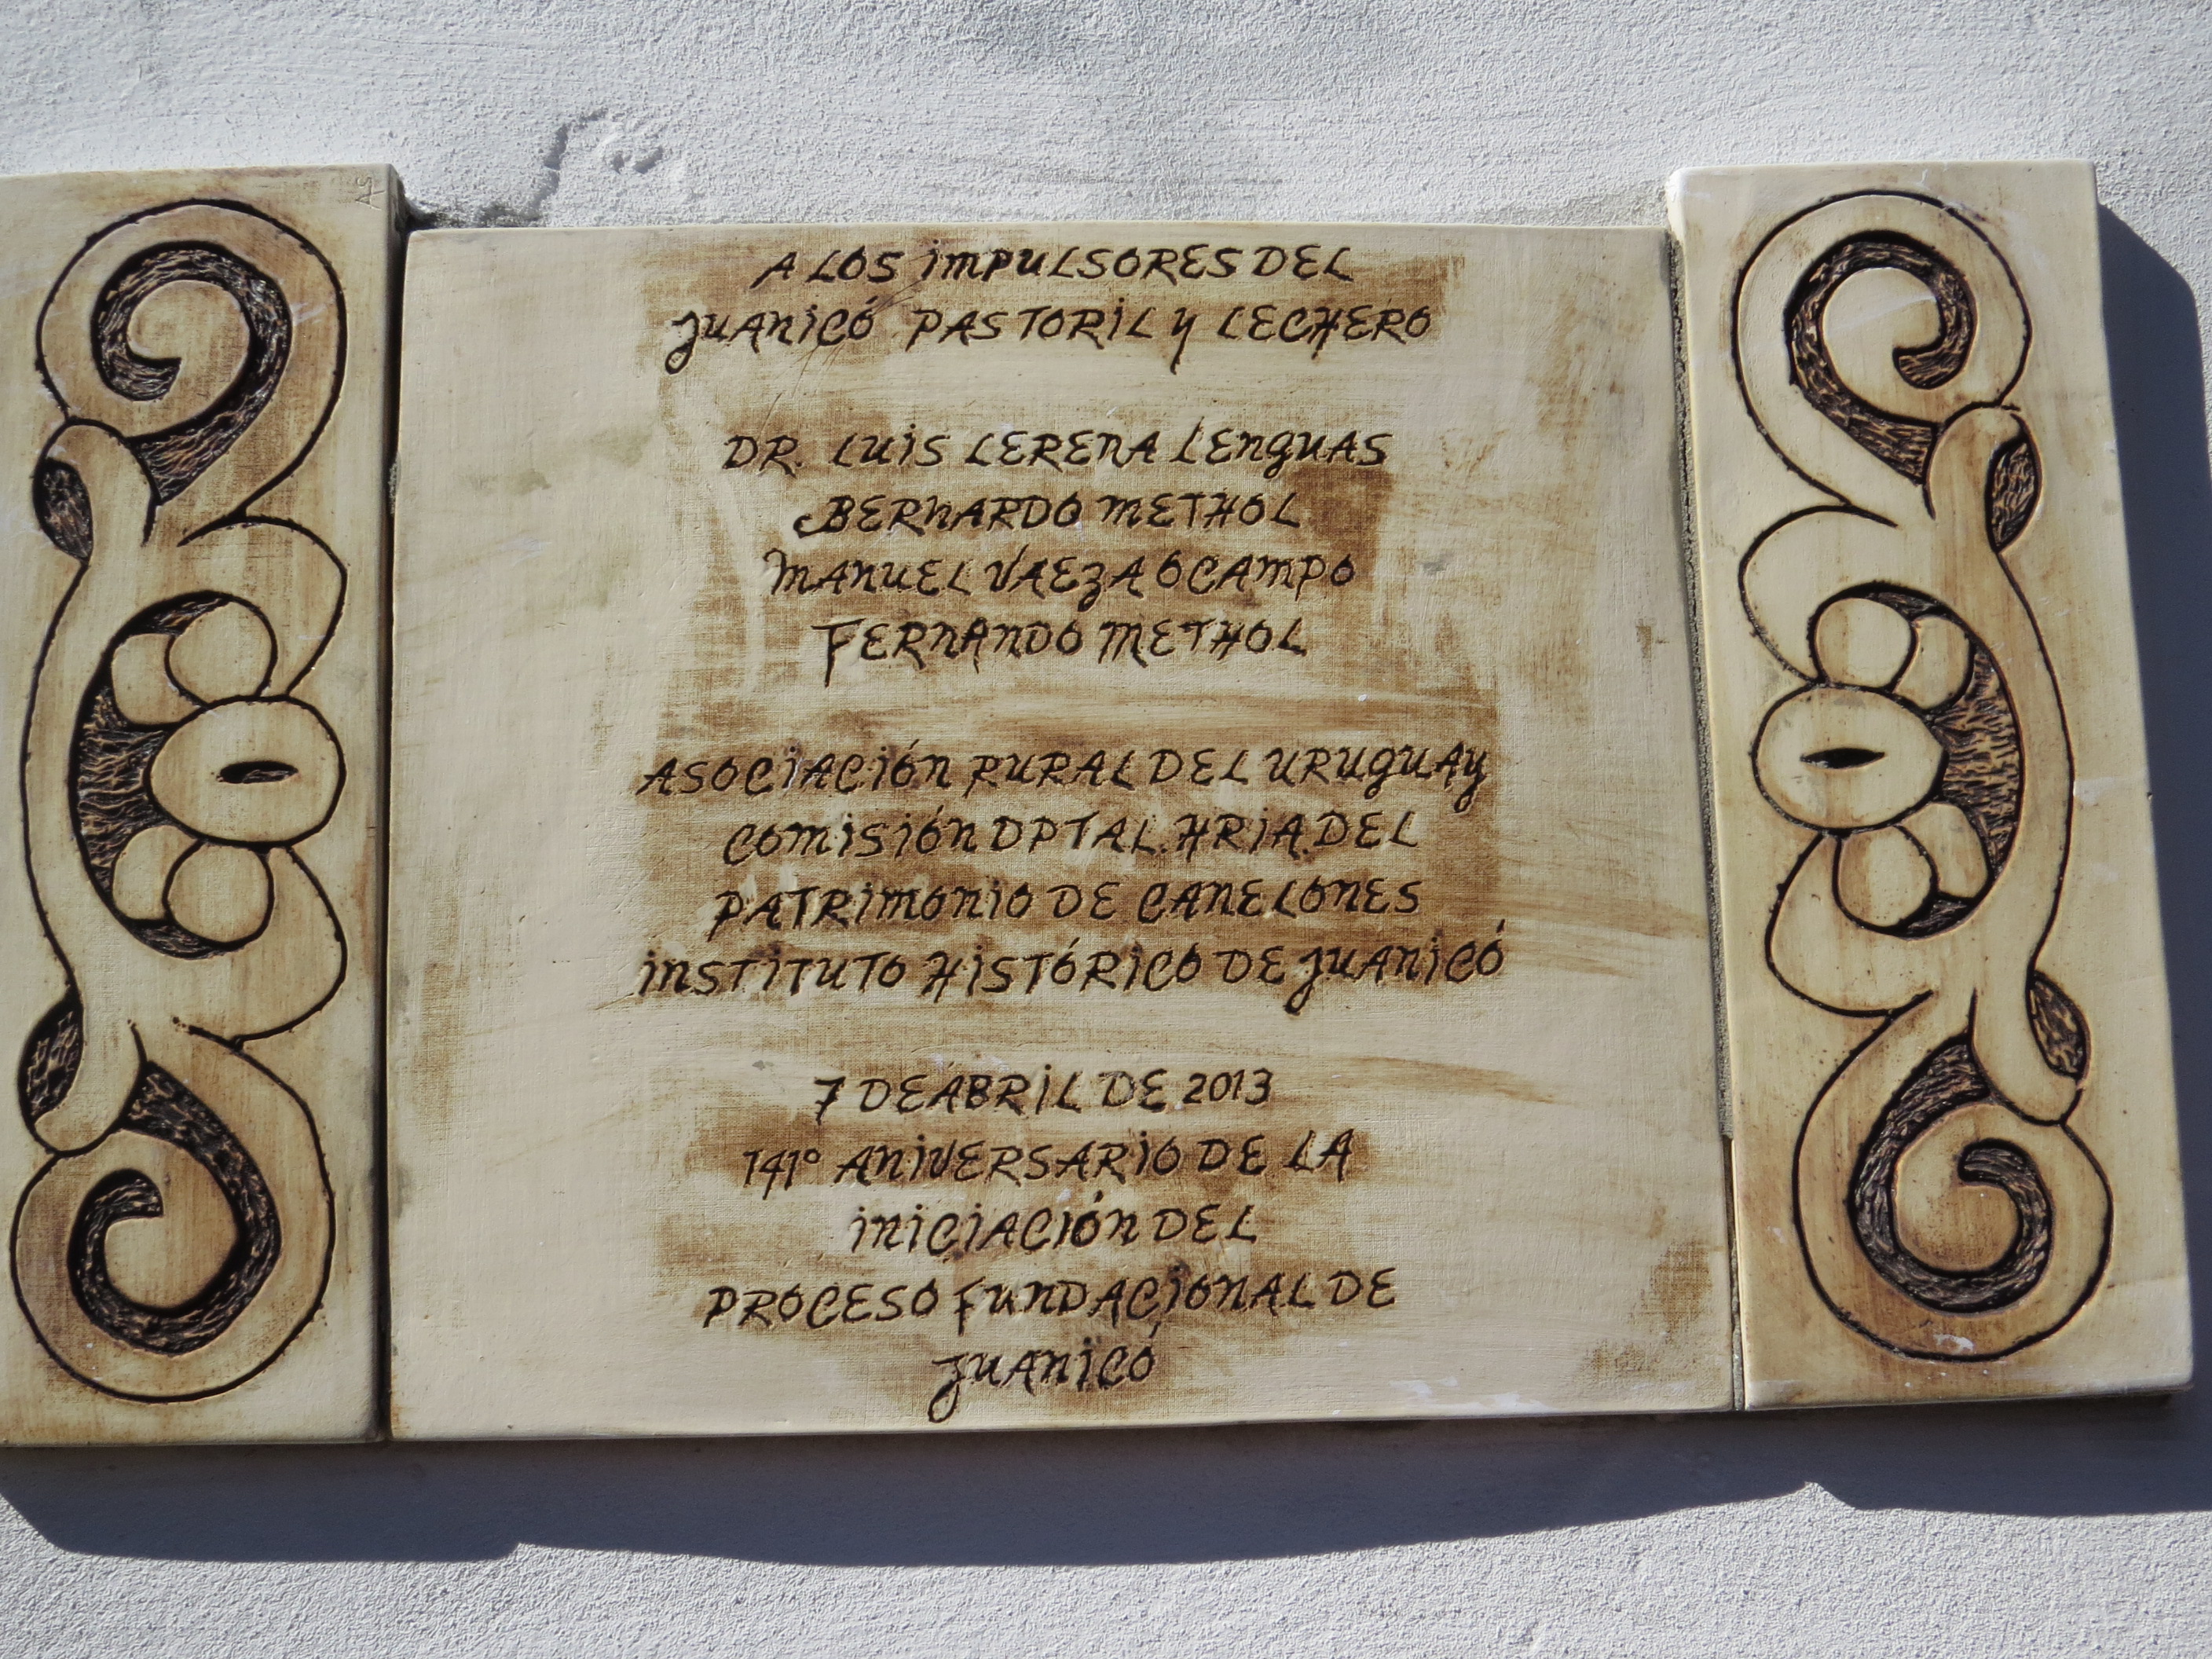 A LOS IMPULSORES DEL
JUANICÓ PASTORIL Y LECHERO
DR. LUIS LERENA LENGUAS
BERNARDO METHOL
MANUEL VAEZA OCAMPO
FERNANDO METHOL
ASOCIACIÓN RURAL DEL URUGUAY
COMISIÓN DPTAL. HRIA. DEL
PATRIMONIO DE CANELONES
INSTITUTO HISTÓRICO DE JUANICÓ
7 DE ABRIL DE 2013
141° ANIVERSARIO DE LA
INICIACIÓN DEL
PROCESO FUNDACIONAL DE
JUANICÓ